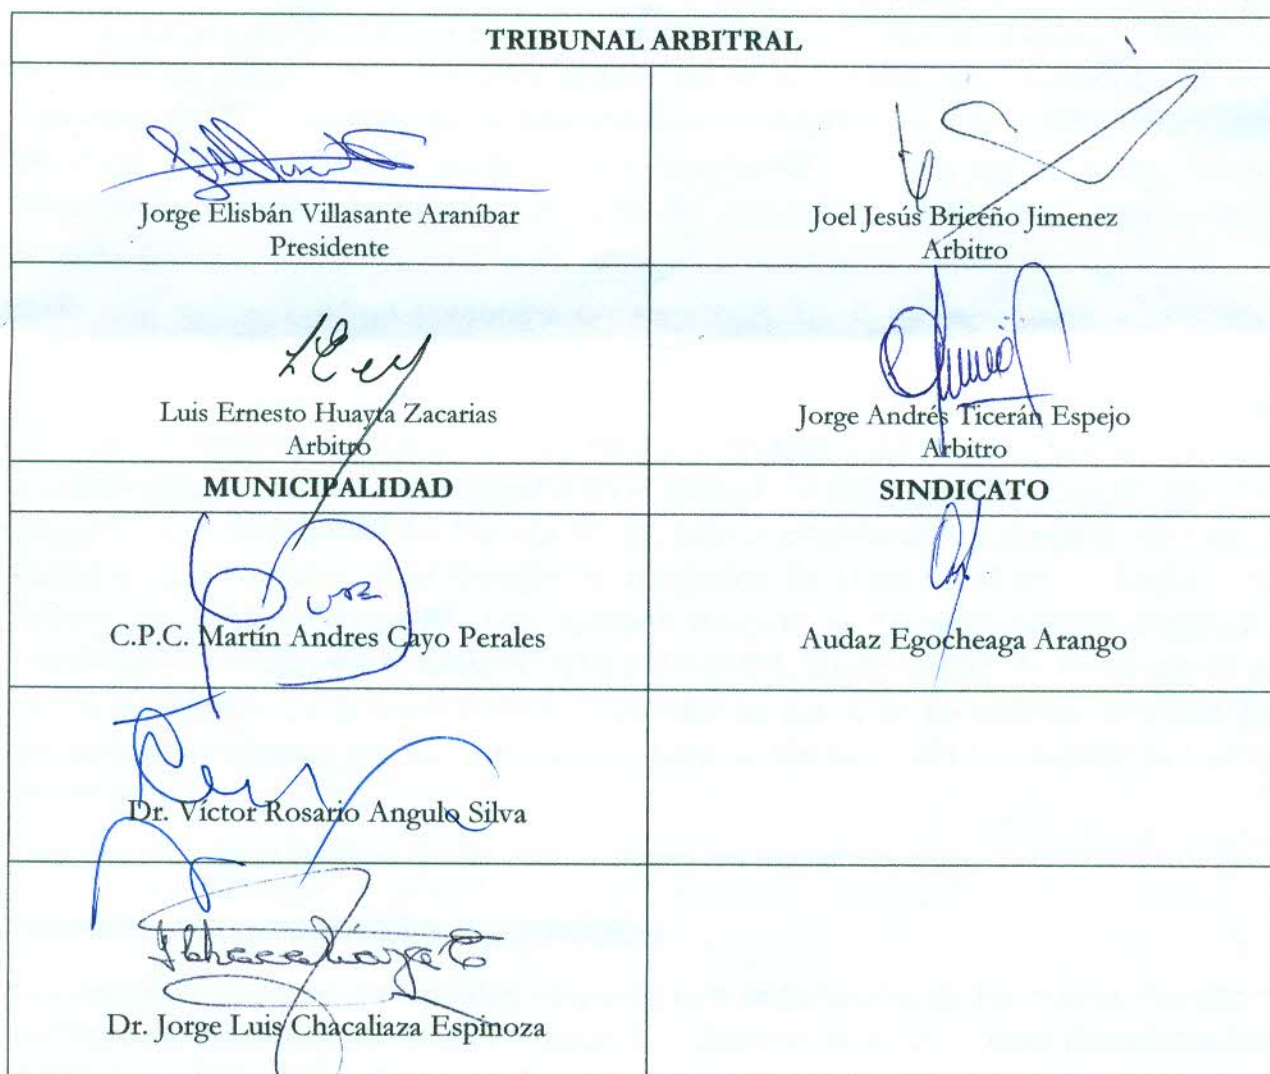 TRIBUNAL ARBITRAL
Jorge Elisbán Villasante Araníbar
Presidente
Joel Jesús Briceño Jimenez
Arbitro
Luis Ernesto Huayta Zacarias
Arbitro
Jorge Andrés Ticerán Espejo
Arbitro
MUNICIPALIDAD
SINDICATO
C.P.C. Martín Andres Cayo Perales
Audaz Egocheaga Arango
Dr. Víctor Rosario Angulo Silva
Dr. Jorge Luis Chacaliaza Espinoza